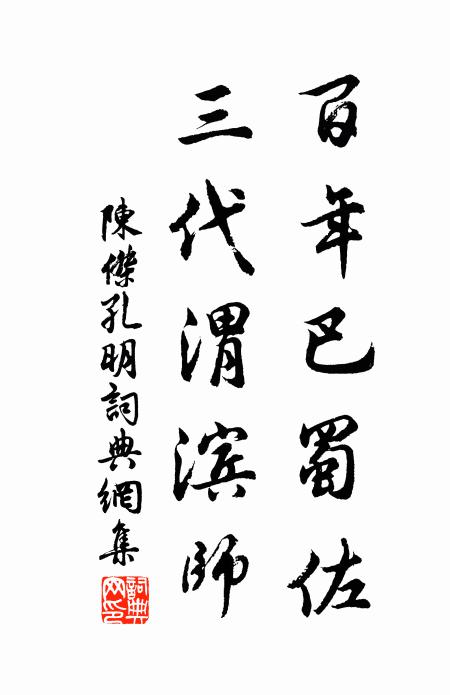 百年巴蜀佐
三代渭滨師
陳傑孔明詞典網集
詞典网印